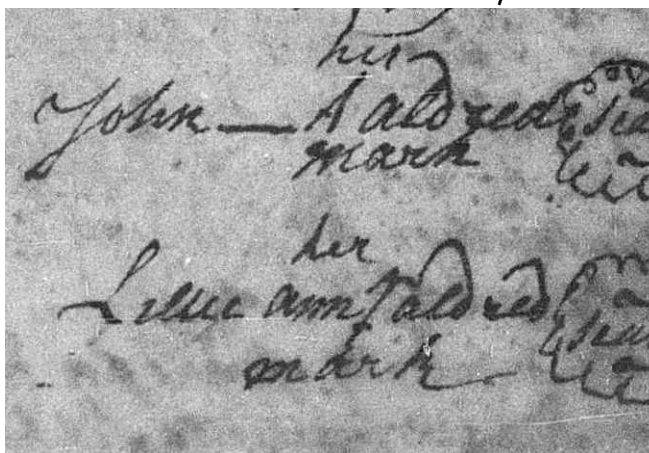 his
John — A aldred Sea
mark
her
ann aldred Sea
mark